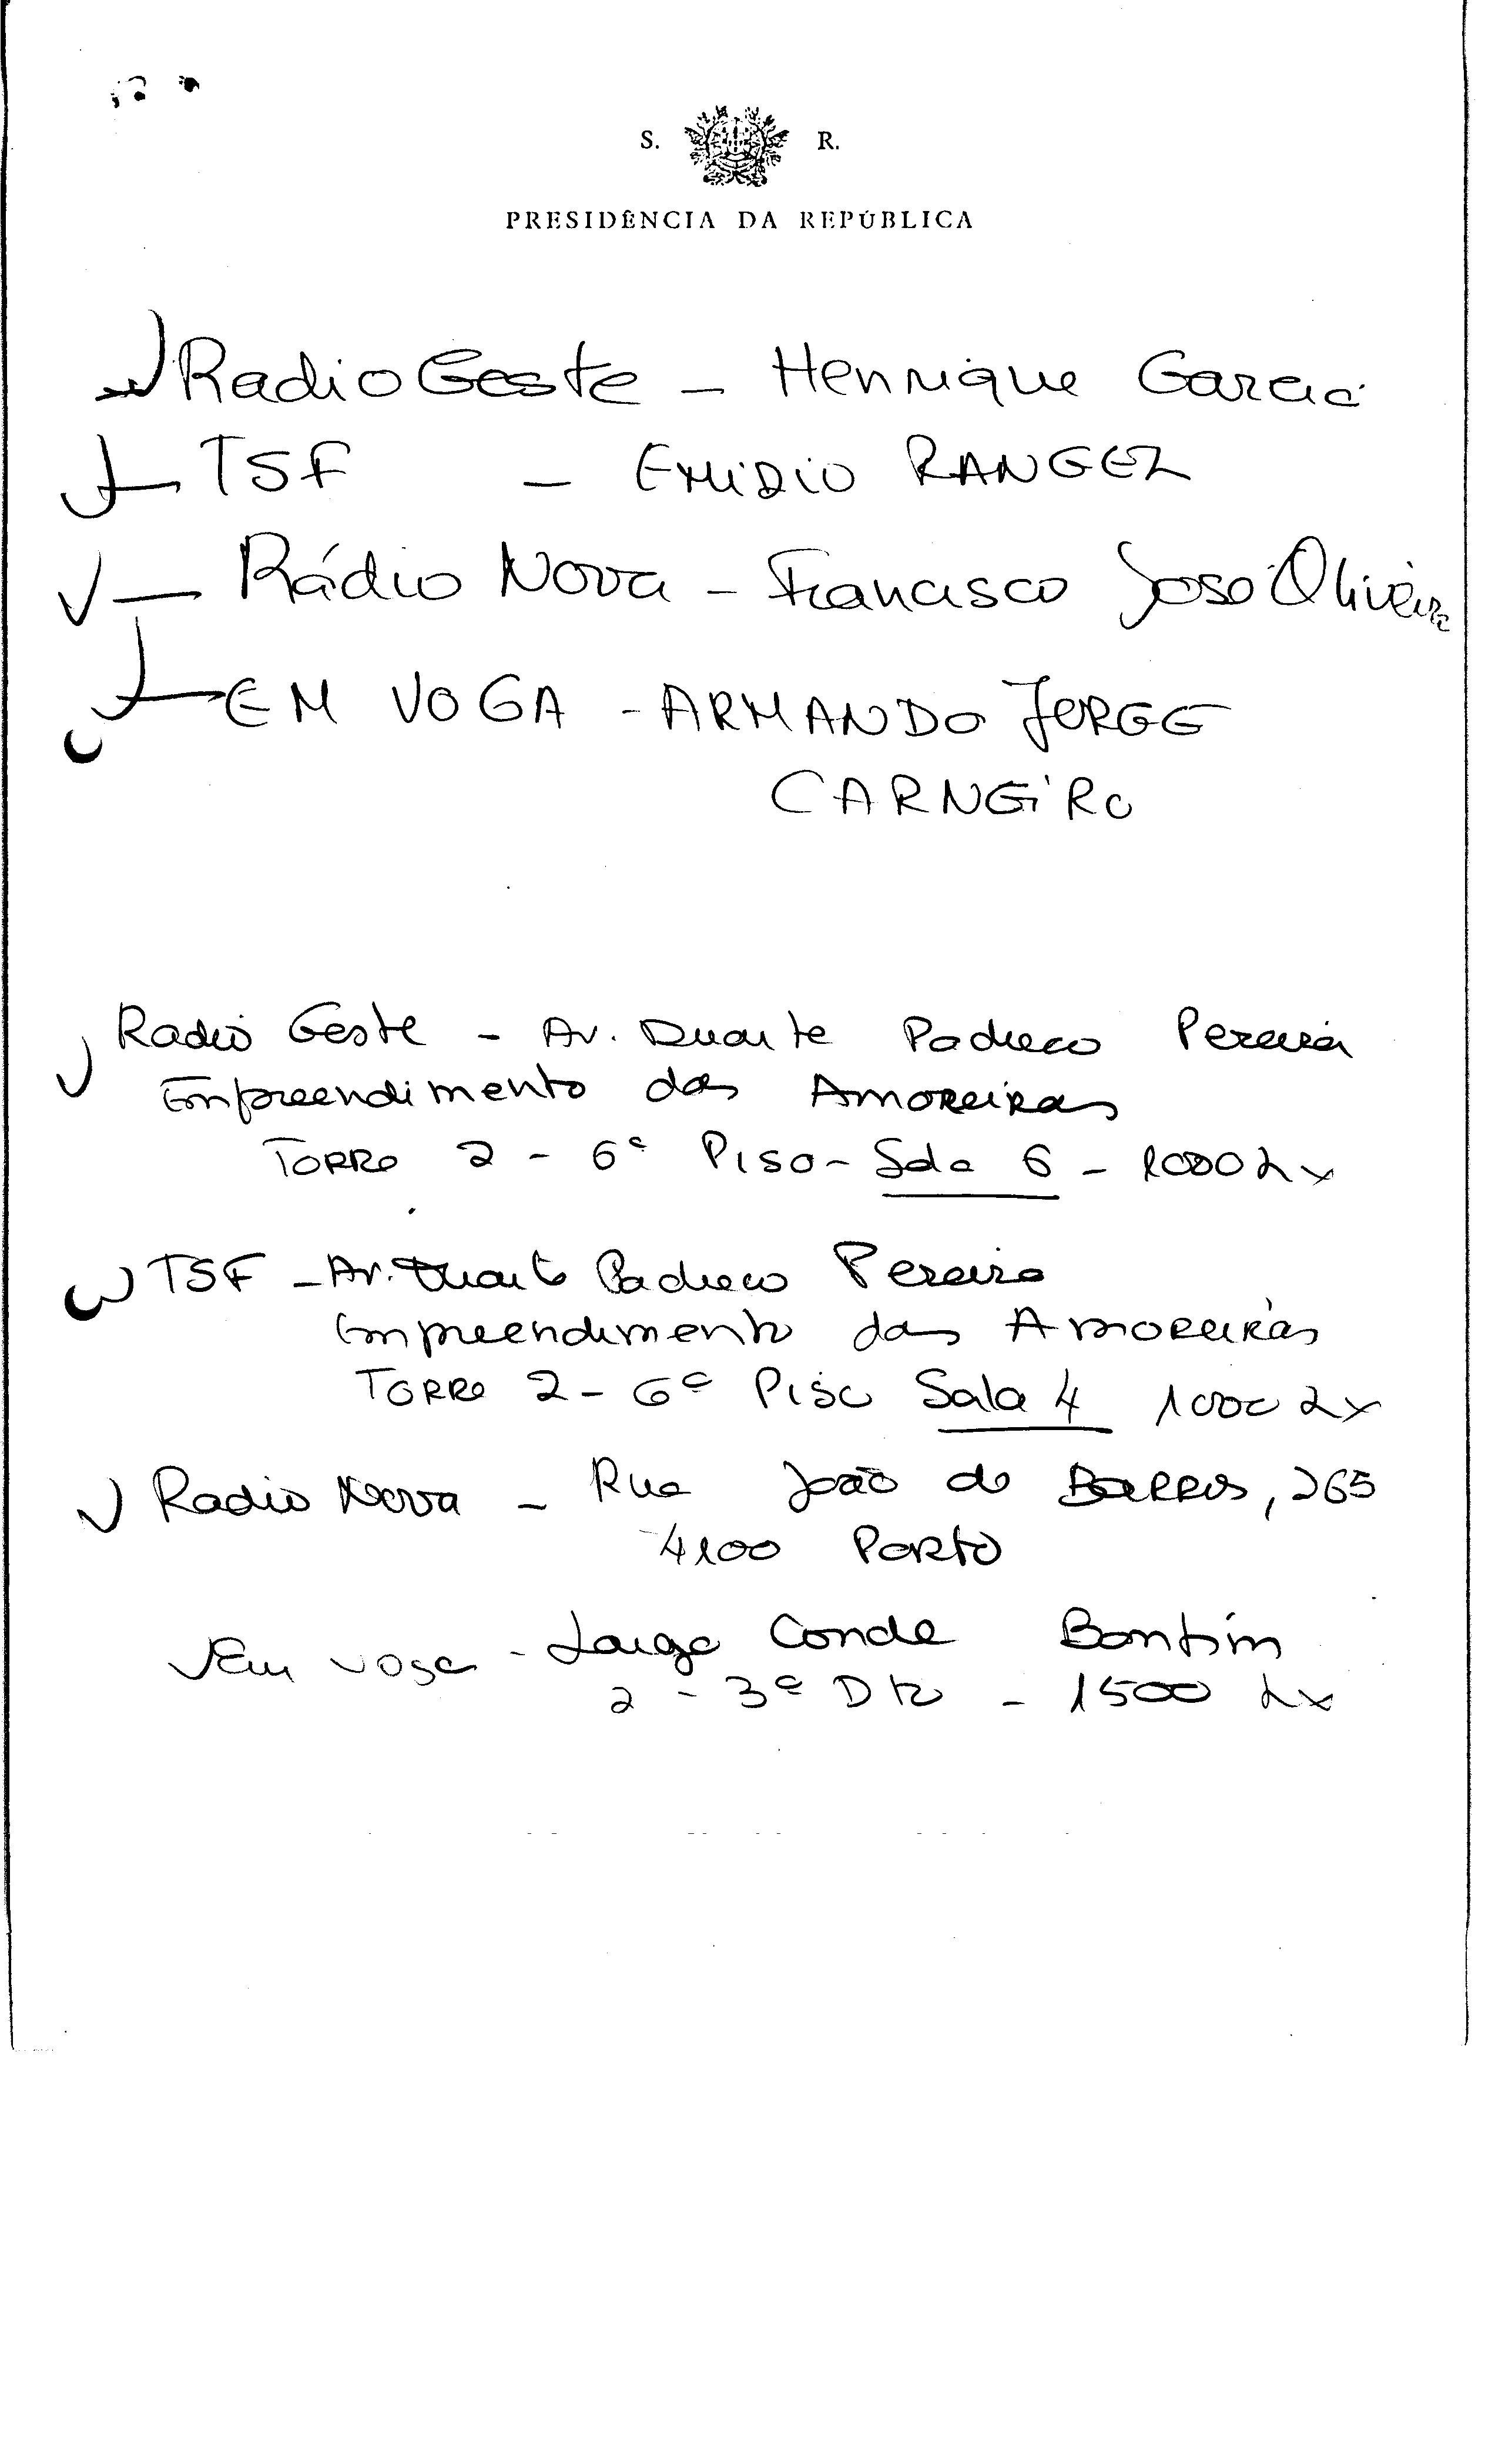 S. R.
PRESIDÊNCIA DA REPÚBLICA
Radio Geste - Henrique Garcia
TSF - EMIDIO RANGEL
Rádio Nova - Francisco José Oliveira
EM VOGA - ARMANDO JORGE
CARNEIRO
Radio Geste - Av. Duarte Pacheco Pereira
Empreendimento das Amoreiras
Torre 2 - 6º Piso - Sala 6 - 1000 Lx
TSF - Av. Duarte Pacheco Pereira
Empreendimento das Amoreiras
Torre 2 - 6º Piso Sala 4 1000 Lx
Radio Nova - Rua João de Barros, 265
4100 Porto
Em Voga - Largo Conde Bonfim
2 - 3º Dto - 1500 Lx